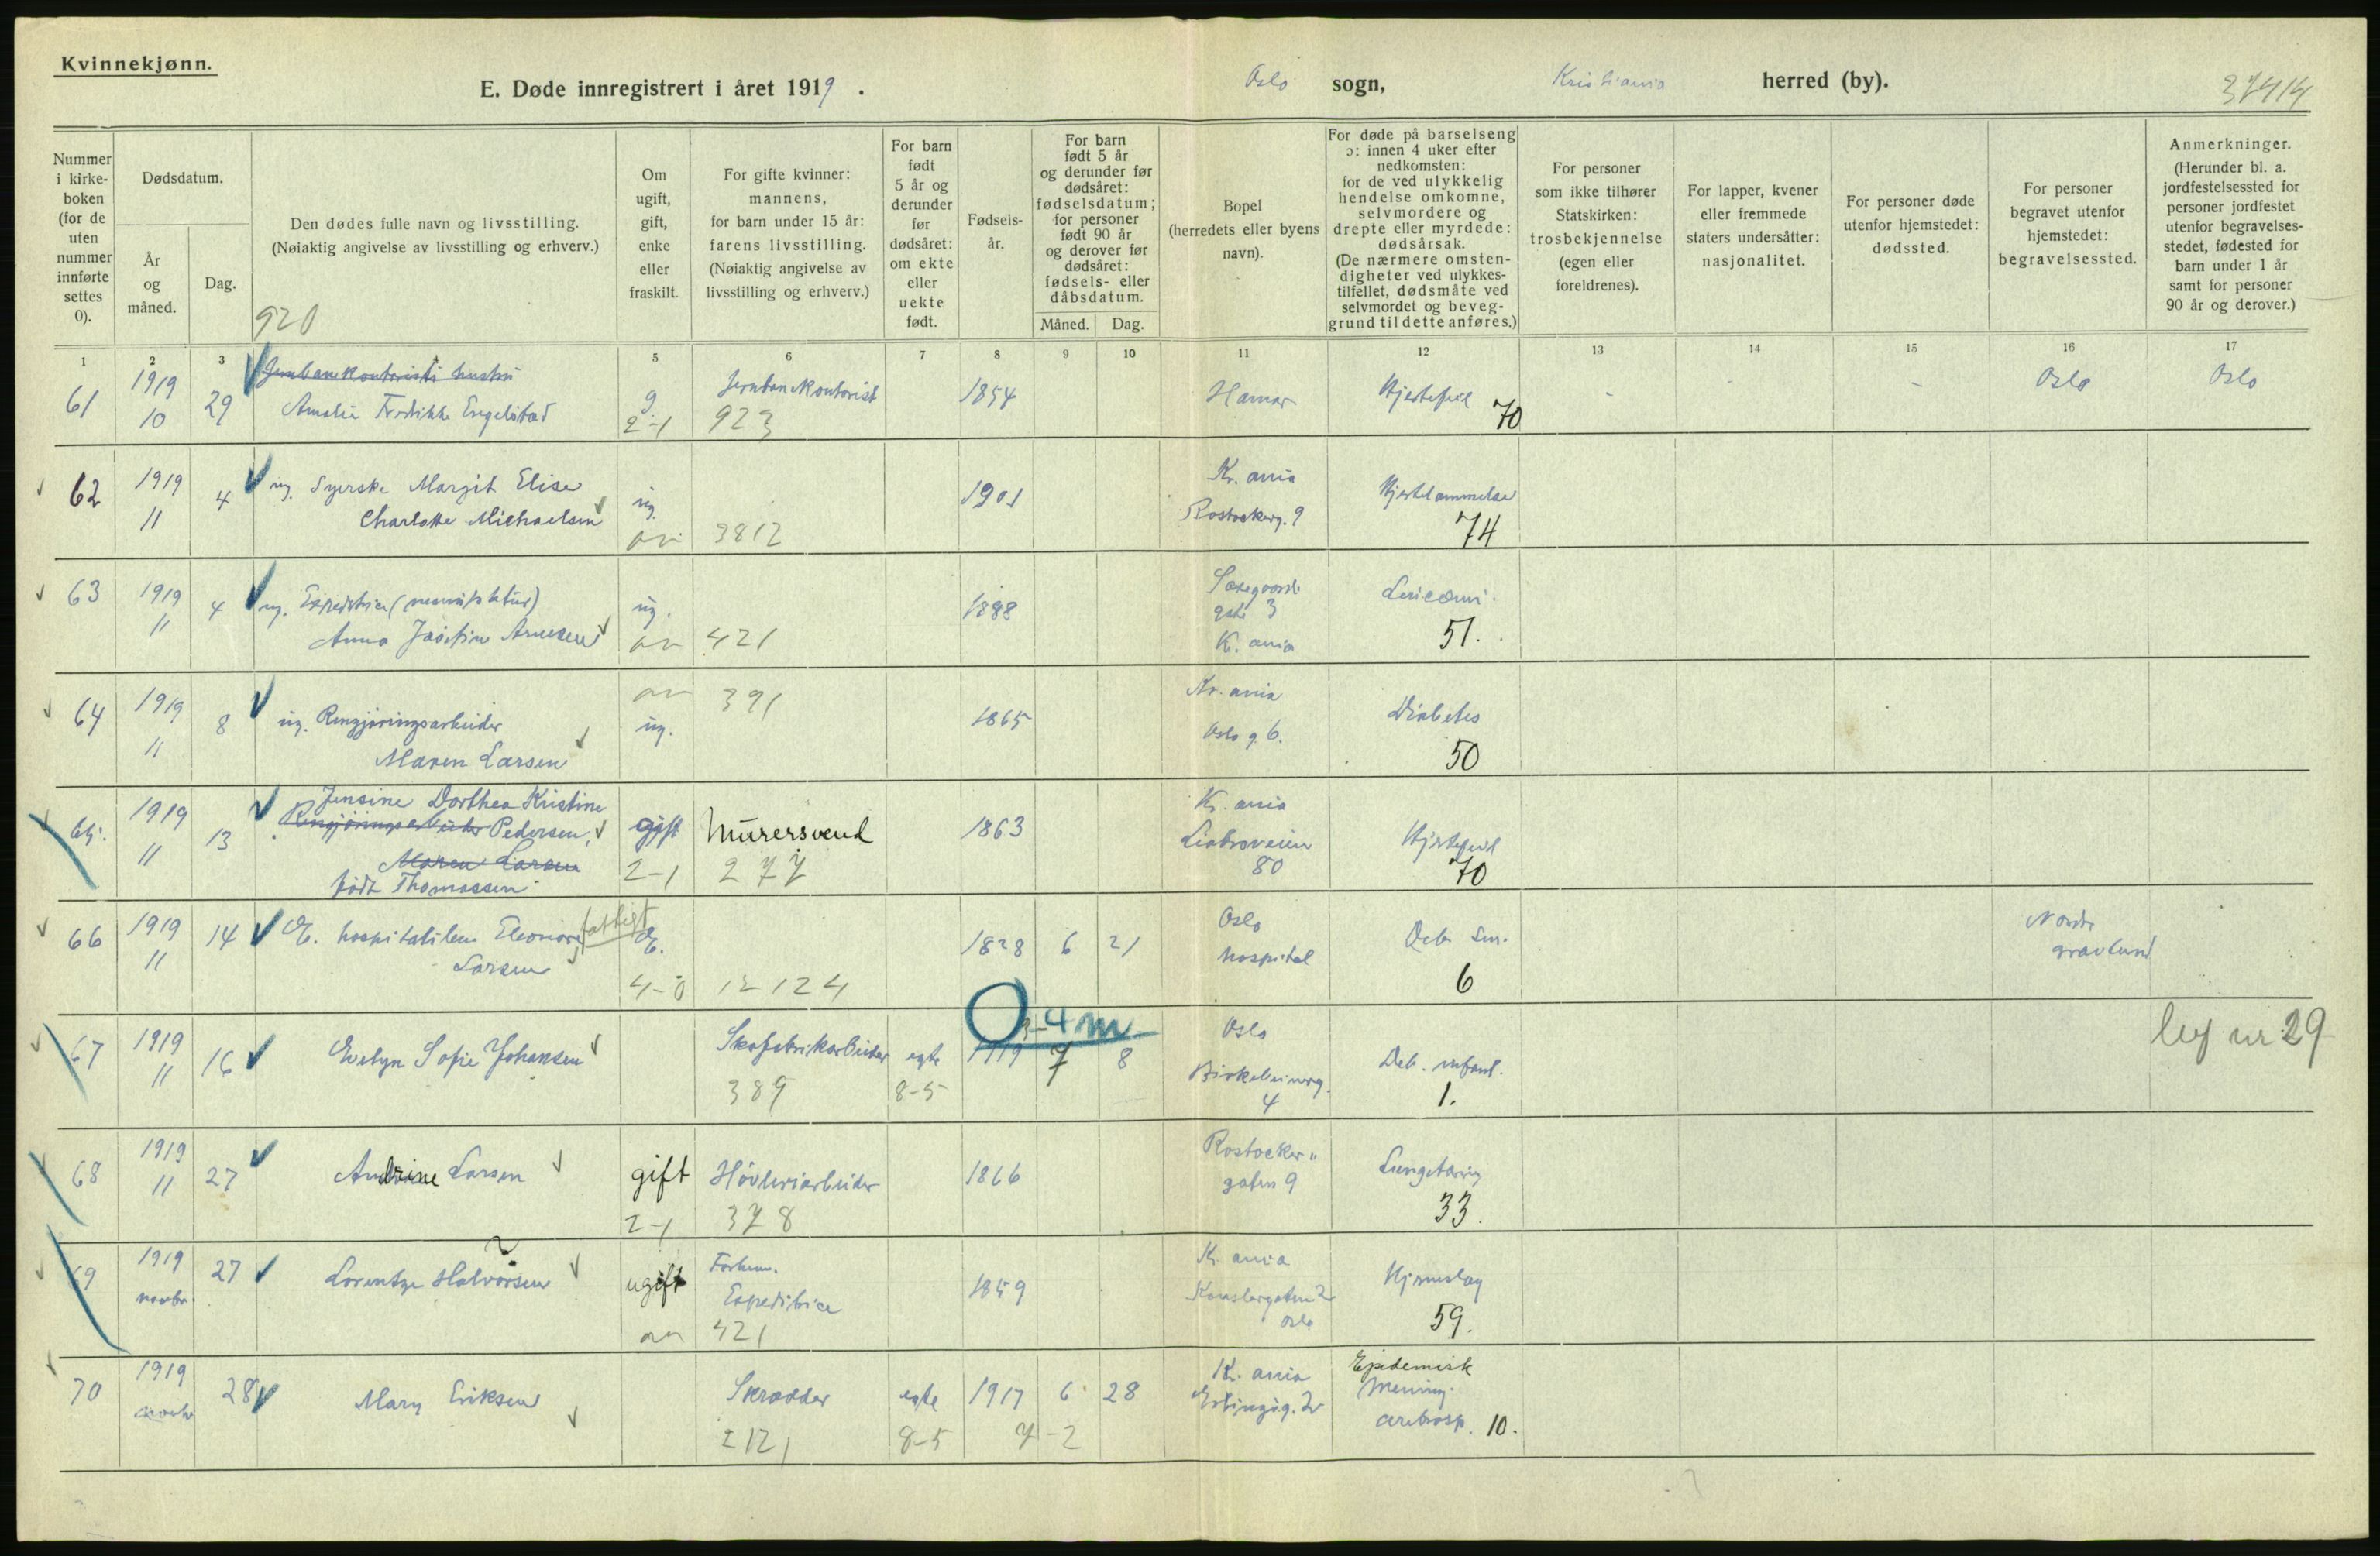 Kvinnekjønn.
E. Døde innregistrert i året 1919.
Oslo sogn, Kristiania herred (by).
37414
Nummer i kirke-boken (for de uten nummer innførte settes 0).
Dødsdatum.
År og måned.
Dag.
Den dødes fulle navn og livsstilling.
(Nøiaktig angivelse av livsstilling og erhverv.)
920
Om ugift, gift, enke eller fraskilt.
For gifte kvinner: mannens, for barn under 15 år: farens livsstilling. (Nøiaktig angivelse av livsstilling og erhverv.)
For barn født 5 år og derunder før dødsåret: om ekte eller uekte født.
Fødsels-år.
For barn født 5 år og derunder før dødsåret: fødselsdatum; for personer født 90 år og derover før dødsåret: fødsels- eller dåbsdatum.
Måned. Dag.
Bopel (herredets eller byens navn).
For døde på barselseng ɔ: innen 4 uker efter nedkomsten: for de ved ulykkelig hendelse omkomne, selvmordere og drepte eller myrdede: dødsårsak. (De nærmere omsten-digheter ved ulykkes-tilfellet, dødsmåte ved selvmordet og beveg-grund til dette anføres.)
For personer som ikke tilhører Statskirken: trosbekjennelse (egen eller foreldrenes).
For lapper, kvener eller fremmede staters undersåtter: nasjonalitet.
For personer døde utenfor hjemstedet: dødssted.
For personer begravet utenfor hjemstedet: begravelsessted.
Anmerkninger. (Herunder bl. a. jordfestelsessted for personer jordfestet utenfor begravelses-stedet, fødested for barn under 1 år samt for personer 90 år og derover.)
1 2 3 5 6 7 8 9 10 11 12 13 14 15 16 17
61 1919 10 29 Jernbanekontorists hustru
Amalie Fredrikke Engelstad g. 2-1 Jernbanekontorist 923 1854 Hamar Hjertefeil 70 - - Oslo Oslo
62 1919 11 4 ug. Syerske Margit Elise
Charlotte Michaelsen ug. 3812 1901 Kr.ania Rostockerg. 9 Hjertelammelse 74
63 1919 11 4 ug. Expeditrice
Anna Josefine Arnesen ug. 421 1888 3 K.ania 51.
64 1919 11 8 ug. Rengjøringsarbeider
Maren Larsen ug. 391 1865 Kr.ania Oslo g. 6. Diabetes 50
65. 1919 11 13 Jensine Dorthea Kristine
Rengjøringsarbeider Pedersen,
Maren Larsen
født Thomassen gift 2-1 Murersvend 277 1863 Kr.ania Liabroveien 80 Hjertefeil 70
66 1919 11 14 E. hospitalslem Eleonore
Larsen fattigt E. 4-0 12124 1828 6 21 Oslo hospital Deb. sen. 6 Nordre gravlund
67 1919 11 16 Evelyn Sofie Johansen Skofabrikarbeider 389 egte 8-5 1919 7 8 3-4 m Oslo Birkebeinerg. 4 Deb. infant. 1. lev nr 29
68 1919 11 27 Andrine Larsen gift 2-1 Høvleriarbeider 378 1866 Rostocker" gaten 9 Lungetæring 33.
69 1919 novbr. 27 Lorentze Halvorsen ugift Forhenv. Expeditrice 421 1859 K.ania Kanslergaten 2 Oslo Hjerneslag 59.
70 1919 novbr 28 Mary Eriksen Skrædder 2121 egte 8-5 1917 6 28 7-2 Kr.ania Erlingsg. 2 Epidemisk Mening. cerebrosp. 10.